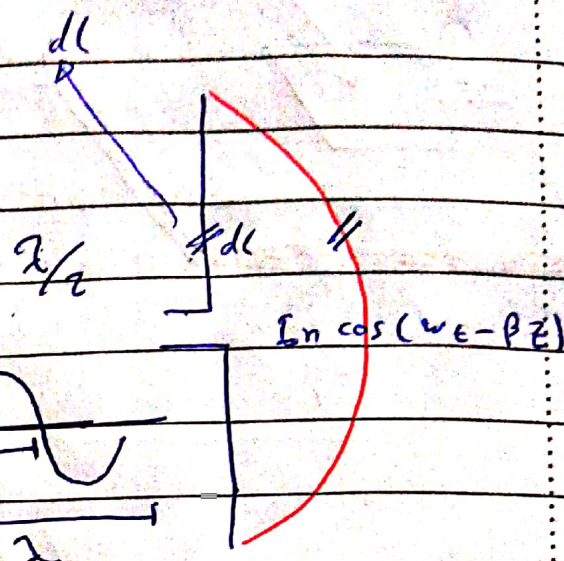 dl
dl
λ/2
Im cos(ωt - βz)
λ